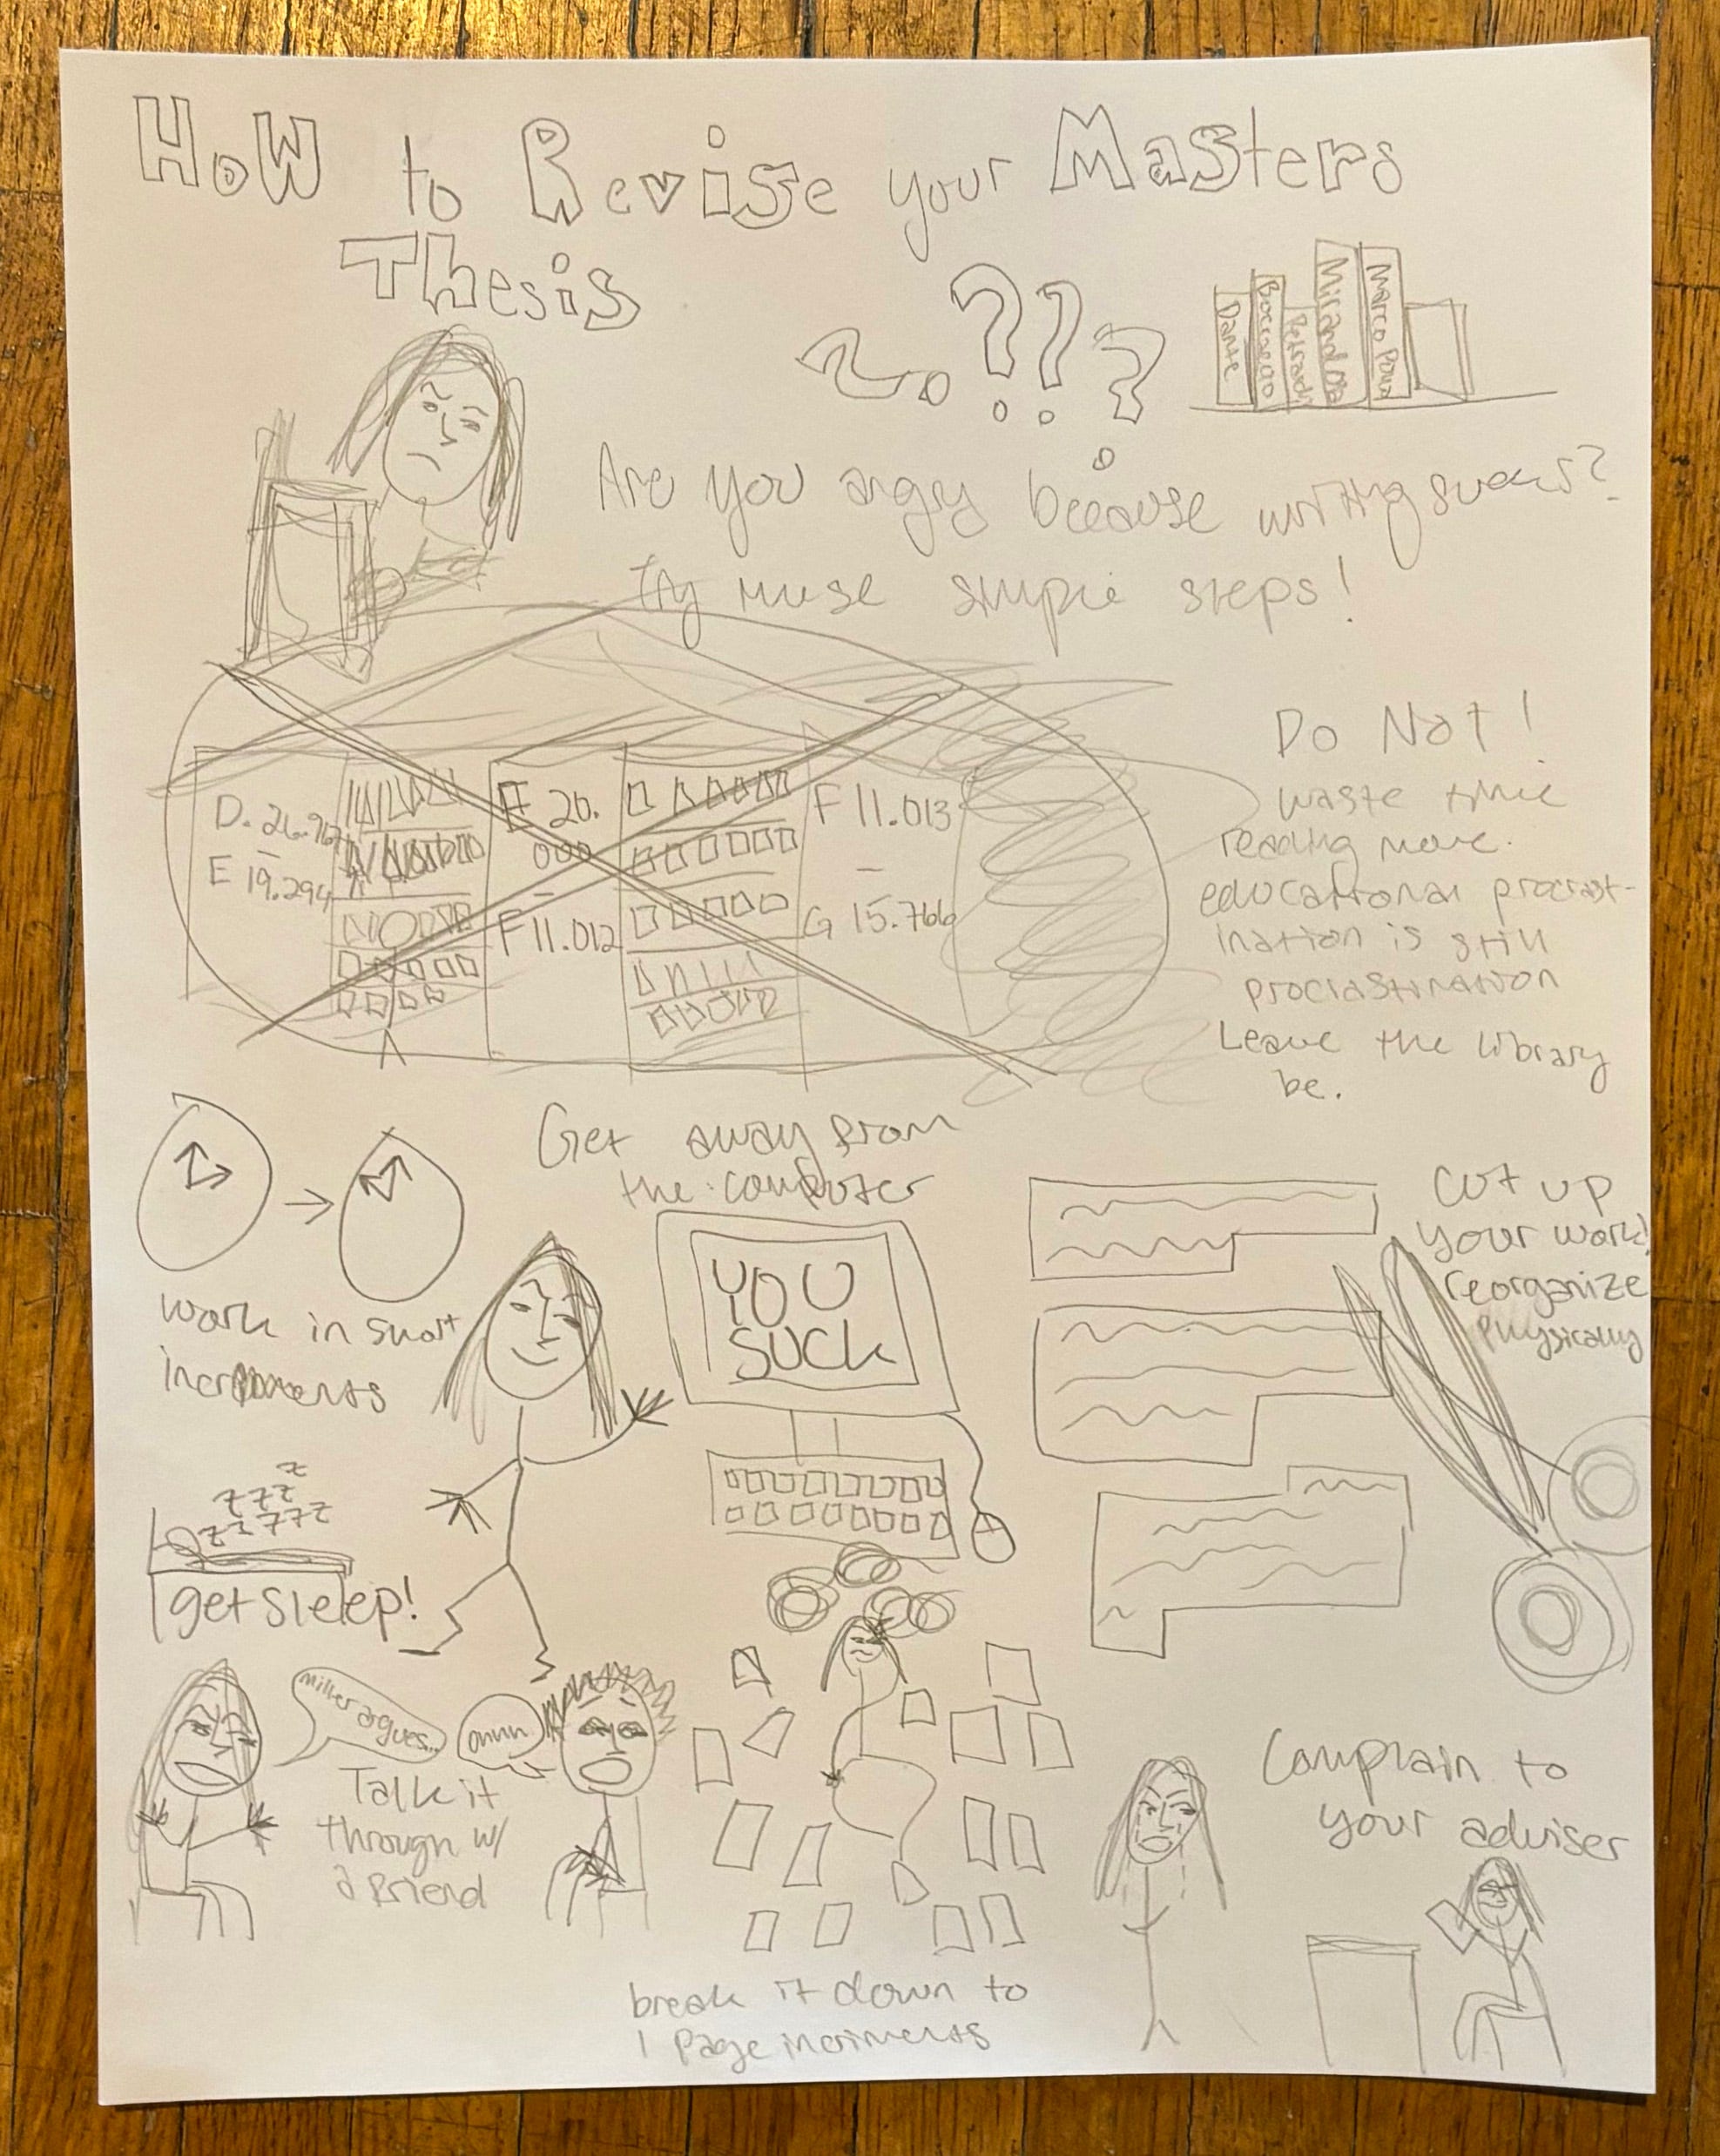 How to Revise your Masters
Thesis
????
Dante
Boccaccio
Petrarch
Mirandola
Marco
Are you angry because writing sucks?
Try these simple steps!
Do Not!
waste time
reading more.
educational procrast-
ination is still
procrastination
Leave the library
be.
D. 26.967
–
E 19.294
E 20.
000
–
F 11.012
F 11.013
–
G 15.766
Get away from
the computer
YOU
SUCK
work in short
increments
cut up
your work!
reorganize
physically
z
zzz
zzzzz
get sleep!
Miller argues...
ohhh
Talk it
through w/
a friend
break it down to
1 page incriments
Complain to
your adviser